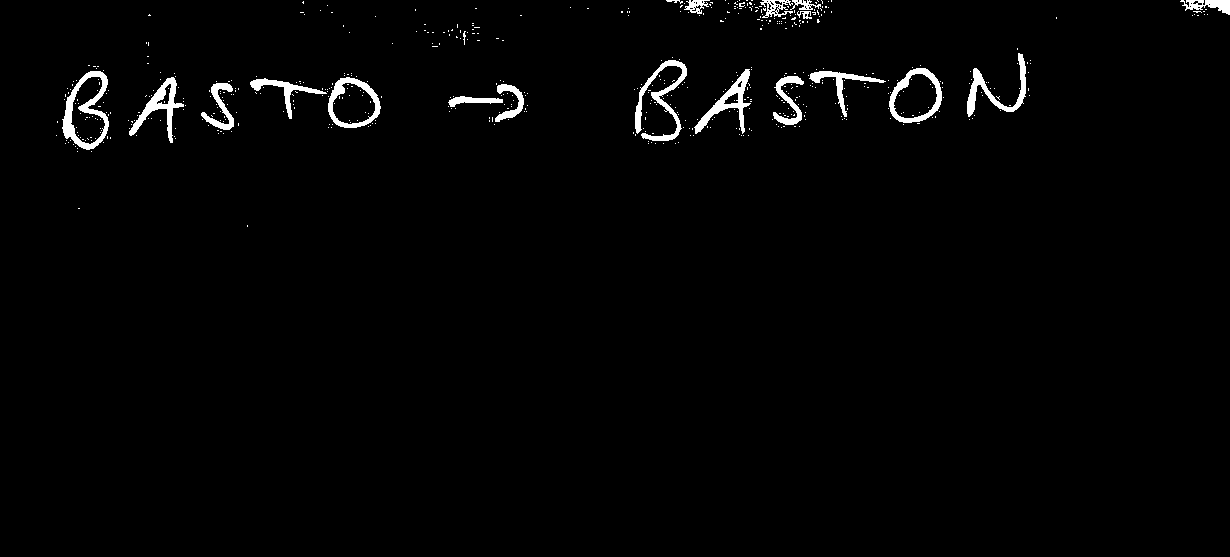 BASTO → BASTON